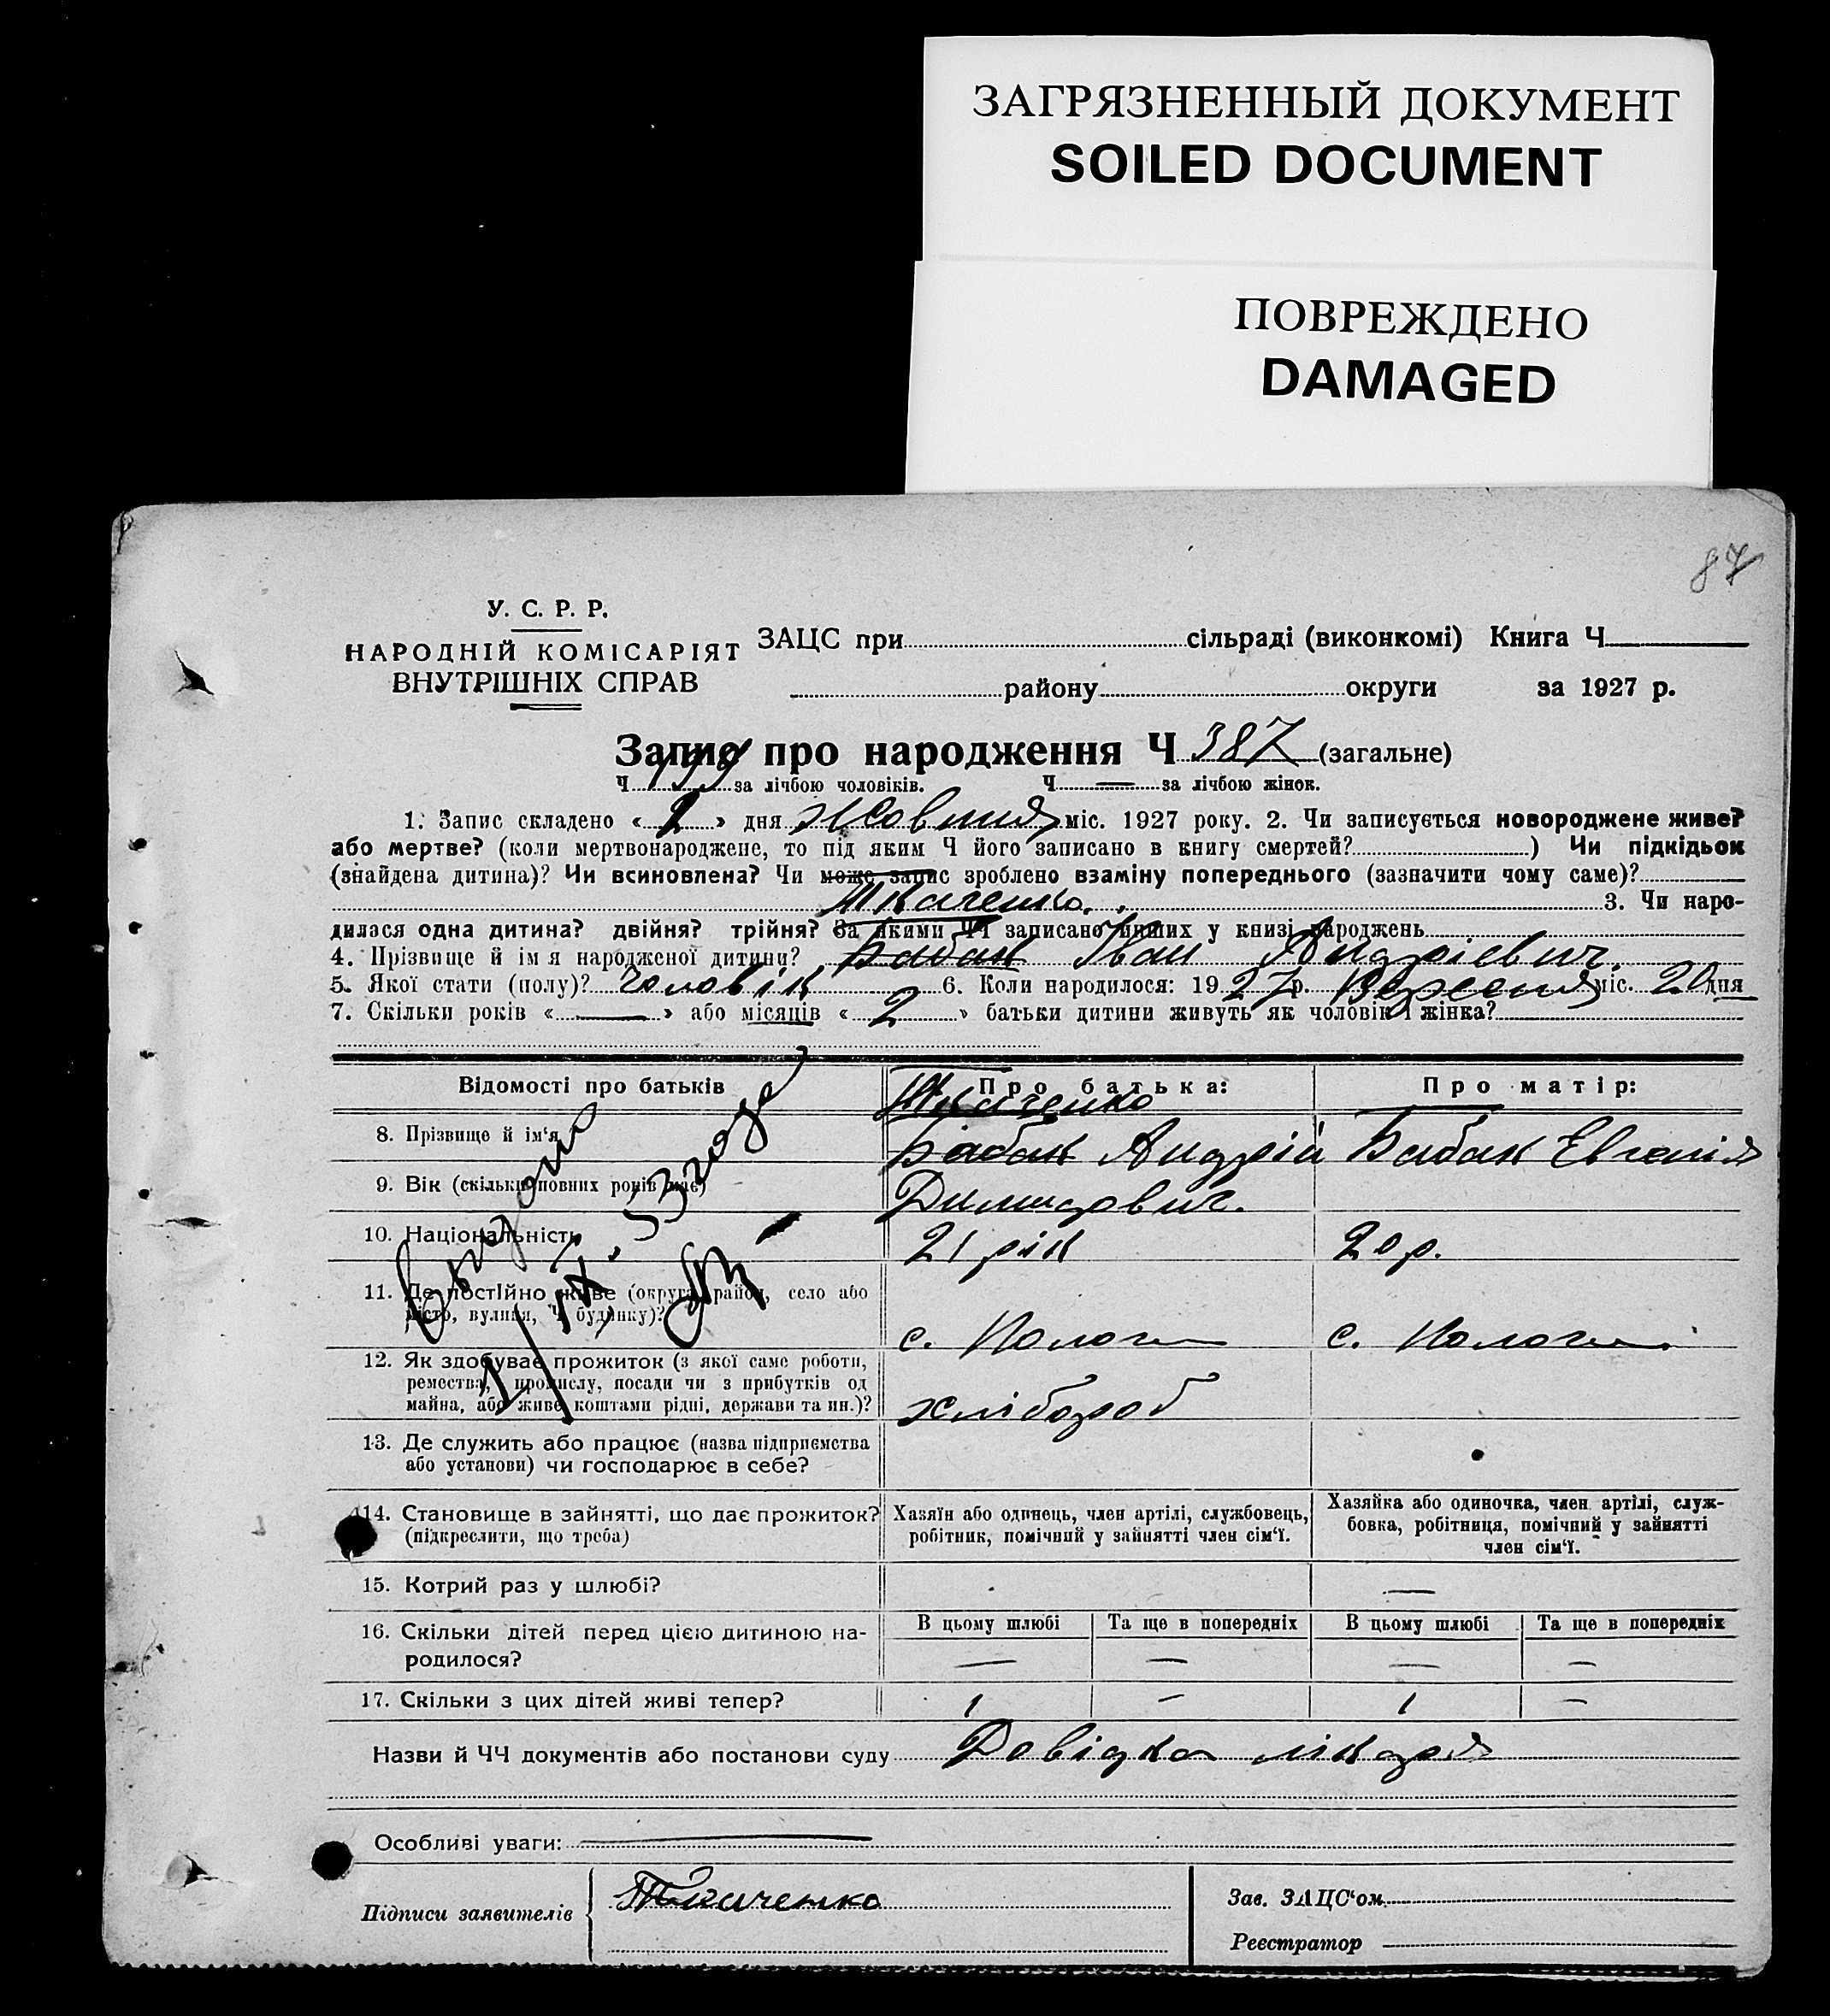 ЗАГРЯЗНЕННЫЙ ДОКУМЕНТ
SOILED DOCUMENT
ПОВРЕЖДЕНО
DAMAGED
87
У. С. Р. Р.
НАРОДНІЙ КОМІСАРІЯТ
ВНУТРІШНІХ СПРАВ
ЗАЦС при сільраді (виконкомі) Книга Ч
району округи за 1927 р.
Запис про народження Ч 387 (загальне)
Ч 199 за лічбою чоловіків. Ч — за лічбою жінок.
1. Запис складено « 2 » дня Жовтня міс. 1927 року. 2. Чи записується новороджене живе?
або мертве? (коли мертвонароджене, то під яким Ч його записано в книгу смертей? ) Чи підкідьок
(знайдена дитина)? Чи всиновлена? Чи може запис зроблено взаміну попереднього (зазначити чому саме)?
Ткаченко 3. Чи наро-
дилася одна дитина? двійня? трійня? За якими ЧЧ записано инших у книзі народжень
4. Прізвище й ім я народженої дитини? Бабак Іван Андрієвич.
5. Якої стати (полу)? Чоловік 6. Коли народилося: 1927 р. Вересня міс. 20 дня
7. Скільки років « — » або місяців « 2 » батьки дитини живуть як чоловік і жінка?
Відомості про батьків
Про батька:
Про матір:
Ткаченко
8. Прізвище й ім‘я
Бабак Андрій
Бабак Евгенія
9. Вік (скільки повних років має)
10. Національність
21 рік
20 р.
11. Де постійно живе (округа, район, село або
місто, вулиця, Ч будинку)?
с. Пологи
с. Пологи
12. Як здобуває прожиток (з якої саме роботи,
ремества, промислу, посади чи з прибутків од
майна, або живе коштами рідні, держави та ин.)?
хлібороб
13. Де служить або працює (назва підприємства
або установи) чи господарює в себе?
14. Становище в зайнятті, що дає прожиток?
(підкреслити, що треба)
Хазяїн або одинець, член артілі, службовець,
робітник, помічний у зайнятті член сім‘ї.
Хазяйка або одиночка, член артілі, служ-
бовка, робітниця, помічний у зайнятті
член сім‘ї.
15. Котрий раз у шлюбі?
—
16. Скільки дітей перед цією дитиною на-
родилося?
В цьому шлюбі
Та ще в попередніх
В цьому шлюбі
Та ще в попередніх
— — — —
17. Скільки з цих дітей живі тепер?
1 — 1 —
Назви й ЧЧ документів або постанови суду Довідка лікаря
Особливі уваги: —
Підписи заявителів
Ткаченко
Зав. ЗАЦС‘ом
Реєстратор